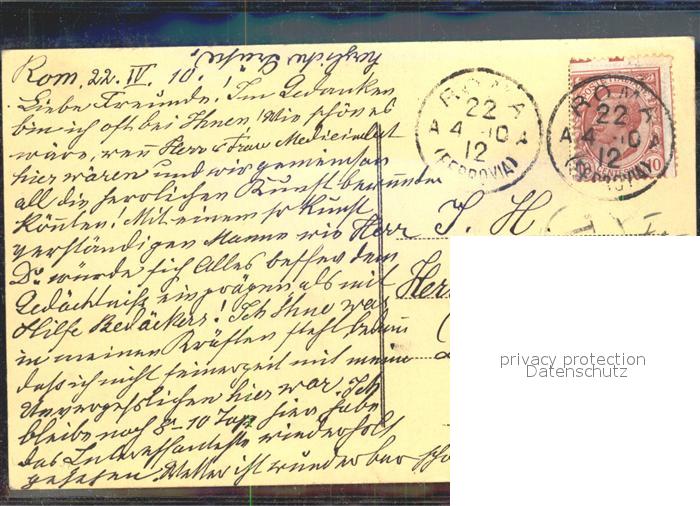 herzliche Grüße!
Rom. 22. IV. 10.
Liebe Freunde! Im Gedanken
bin ich oft bei Ihnen! Wie schön es
wäre, wenn Herr u Frau Medicinalrat
hier wären und wir gemeinsam
all die herrlichen Kunst bewundern
könnten! Mit einem so kunst
verständigen Manne wie Herr
Dr. würde sich Alles besser dem
Gedächtniß einprägen als mit
Hilfe Bedäckers! Ich
in meinen Kräften steht
daß ich nicht seinerzeit mit meine
Unvergeßlichen hier war. Ich
bleibe noch 8-10 Tage hier habe
das Interessanteste wiederholt
gesehen. Wetter ist wunderbar
ROMA
22
4 10
12
(FERROVIA)
ROMA
22
4 10
12
(FERROVIA)
10
J. H.
Herr
privacy protection
Datenschutz